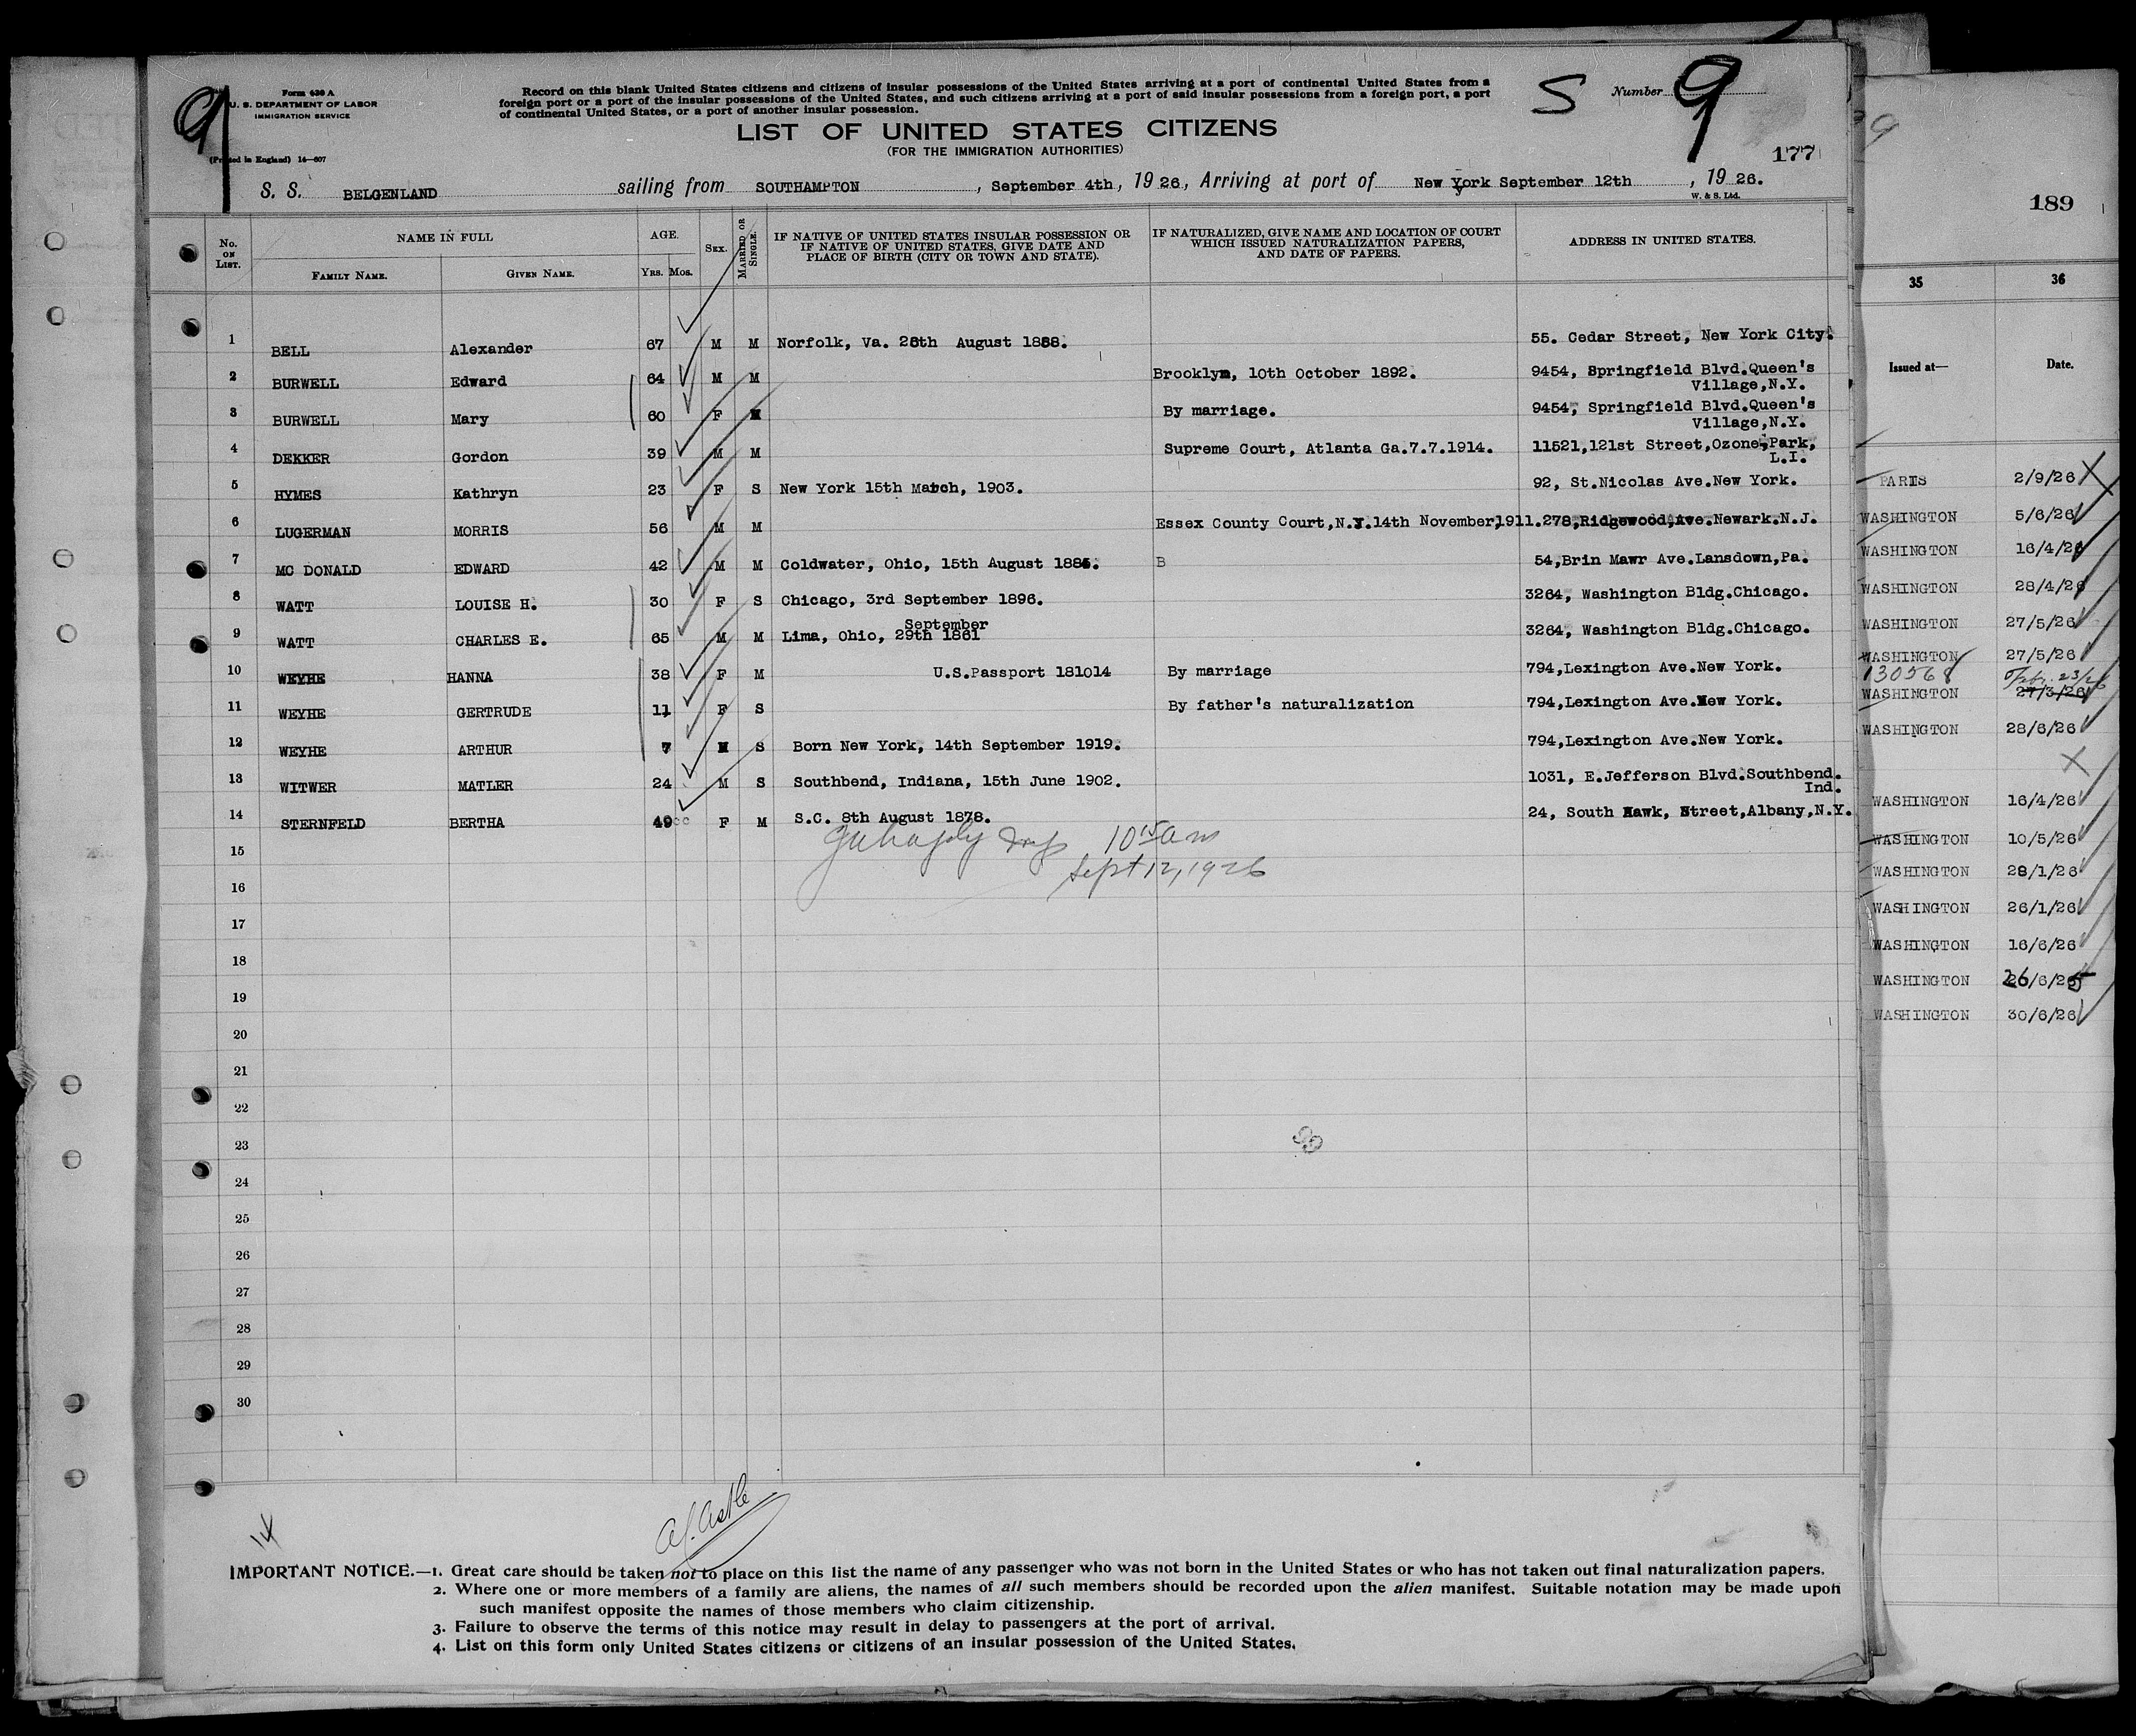 9
Form 630 A
U. S. DEPARTMENT OF LABOR
IMMIGRATION SERVICE
(Printed in England) 14—607
Record on this blank United States citizens and citizens of insular possessions of the United States arriving at a port of continental United States from a
foreign port or a port of the insular possessions of the United States, and such citizens arriving at a port of said insular possessions from a foreign port, a port
of continental United States, or a port of another insular possession.
S Number 9
LIST OF UNITED STATES CITIZENS
(FOR THE IMMIGRATION AUTHORITIES)
177
S. S. BELGENLAND sailing from SOUTHAMPTON, September 4th, 1926, Arriving at port of New York September 12th, 1926.
W. & S. Ltd.
No. ON LIST. NAME IN FULL AGE. SEX. MARRIED OR SINGLE. IF NATIVE OF UNITED STATES INSULAR POSSESSION OR IF NATIVE OF UNITED STATES, GIVE DATE AND PLACE OF BIRTH (CITY OR TOWN AND STATE). IF NATURALIZED, GIVE NAME AND LOCATION OF COURT WHICH ISSUED NATURALIZATION PAPERS, AND DATE OF PAPERS. ADDRESS IN UNITED STATES.
FAMILY NAME. GIVEN NAME. YRS. MOS.
1 BELL Alexander 67 M M Norfolk, Va. 28th August 1858. 55. Cedar Street, New York City.
2 BURWELL Edward 64 M M Brooklyn, 10th October 1892. 9454, Springfield Blvd.Queen's
Village,N.Y.
3 BURWELL Mary 60 F M By marriage. 9454, Springfield Blvd.Queen's
Village,N.Y.
4 DEKKER Gordon 39 M M Supreme Court, Atlanta Ga.7.7.1914. 11521,121st Street,Ozone,Park,
L.I.
5 HYMES Kathryn 23 F S New York 15th March, 1903. 92, St.Nicolas Ave.New York.
6 LUGERMAN MORRIS 56 M M Essex County Court,N.J.14th November,1911. 278,Ridgewood,Ave.Newark.N.J.
7 MC DONALD EDWARD 42 M M Coldwater, Ohio, 15th August 1884. B 54,Brin Mawr Ave.Lansdown,Pa.
8 WATT LOUISE H. 30 F S Chicago, 3rd September 1896. 3264, Washington Bldg.Chicago.
September
9 WATT CHARLES E. 65 M M Lima, Ohio, 29th 1861 3264, Washington Bldg.Chicago.
10 WEYHE HANNA 38 F M U.S.Passport 181014 By marriage 794,Lexington Ave.New York.
11 WEYHE GERTRUDE 11 F S By father's naturalization 794,Lexington Ave.New York.
12 WEYHE ARTHUR 7 M S Born New York, 14th September 1919. 794,Lexington Ave.New York.
13 WITWER MATLER 24 M S Southbend, Indiana, 15th June 1902. 1031, E.Jefferson Blvd.Southbend.
Ind.
14 STERNFELD BERTHA 49 F M S.C. 8th August 1878. 24, South Hawk, Street,Albany,N.Y.
10 15 am
Sept 12, 1926
15
16
17
18
19
20
21
22
23
24
25
26
27
28
29
30
14
IMPORTANT NOTICE.—1. Great care should be taken not to place on this list the name of any passenger who was not born in the United States or who has not taken out final naturalization papers.
2. Where one or more members of a family are aliens, the names of all such members should be recorded upon the alien manifest. Suitable notation may be made upon
such manifest opposite the names of those members who claim citizenship.
3. Failure to observe the terms of this notice may result in delay to passengers at the port of arrival.
4. List on this form only United States citizens or citizens of an insular possession of the United States.
9
189
35 36
Issued at— Date.
PARIS 2/9/26
WASHINGTON 5/6/26
WASHINGTON 16/4/26
WASHINGTON 28/4/26
WASHINGTON 27/5/26
WASHINGTON 27/5/26
130568 Feby. 23/26
WASHINGTON 27/3/26
WASHINGTON 28/6/26
WASHINGTON 16/4/26
WASHINGTON 10/5/26
WASHINGTON 28/1/26
WASHINGTON 26/1/26
WASHINGTON 16/6/26
WASHINGTON 26/6/25
WASHINGTON 30/6/26